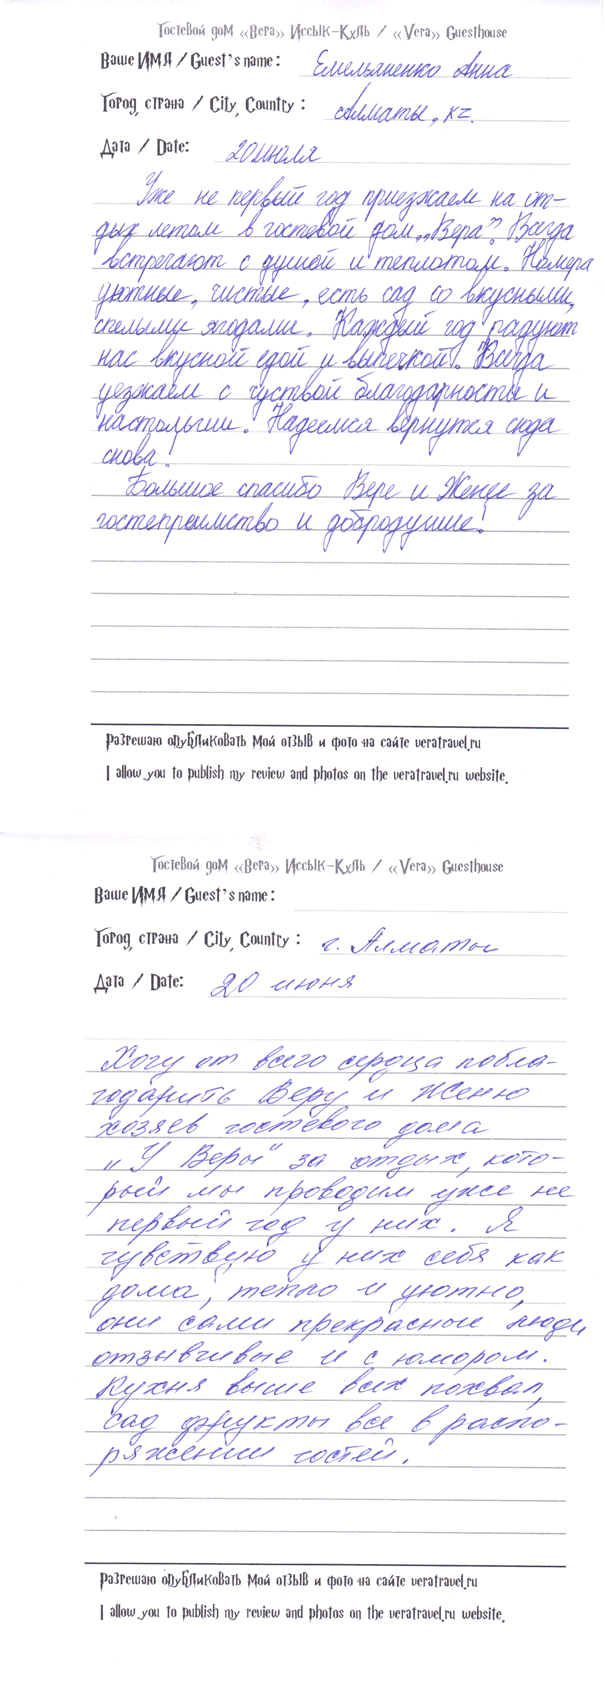 Гостевой дом «Вера» Иссык-Куль / «Vera» Guesthouse
Ваше ИМЯ / Guest's name: Емельяненко Анна
Город, страна / City, Country: Алматы, KZ.
Дата / Date: 20 июля
Уже не первый год приезжаем на от-
дых летом в гостевой дом „Вера”. Всегда
встречают с душой и теплотом. Номера
уютные, чистые, есть сад со вкусными,
спелыми ягодами. Каждый год радуют
нас вкусной едой и выпечкой. Всегда
уезжаем с чуствой благодарносты и
настольгии. Надеемся вернутся сюда
снова!
Большое спасибо Вере и Жене за
гостеприимство и добродушие!
Разрешаю опубликовать мой отзыв и фото на сайте veratravel.ru
I allow you to publish my review and photos on the veratravel.ru website.
Гостевой дом «Вера» Иссык-Куль / «Vera» Guesthouse
Ваше ИМЯ / Guest's name:
Город, страна / City, Country: г. Алматы
Дата / Date: 20 июня
Хочу от всего сердца побла-
годарить Веру и Женю
хозяев гостевого дома
„У Веры" за отдых, кото-
рый мы проводим уже не
первый год у них. Я
чувствую у них себя как
дома, тепло и уютно,
они сами прекрасные люди
отзывчивые и с юмором.
Кухня выше всех похвал,
сад фрукты все в распо-
ряжении гостей.
Разрешаю опубликовать мой отзыв и фото на сайте veratravel.ru
I allow you to publish my review and photos on the veratravel.ru website.